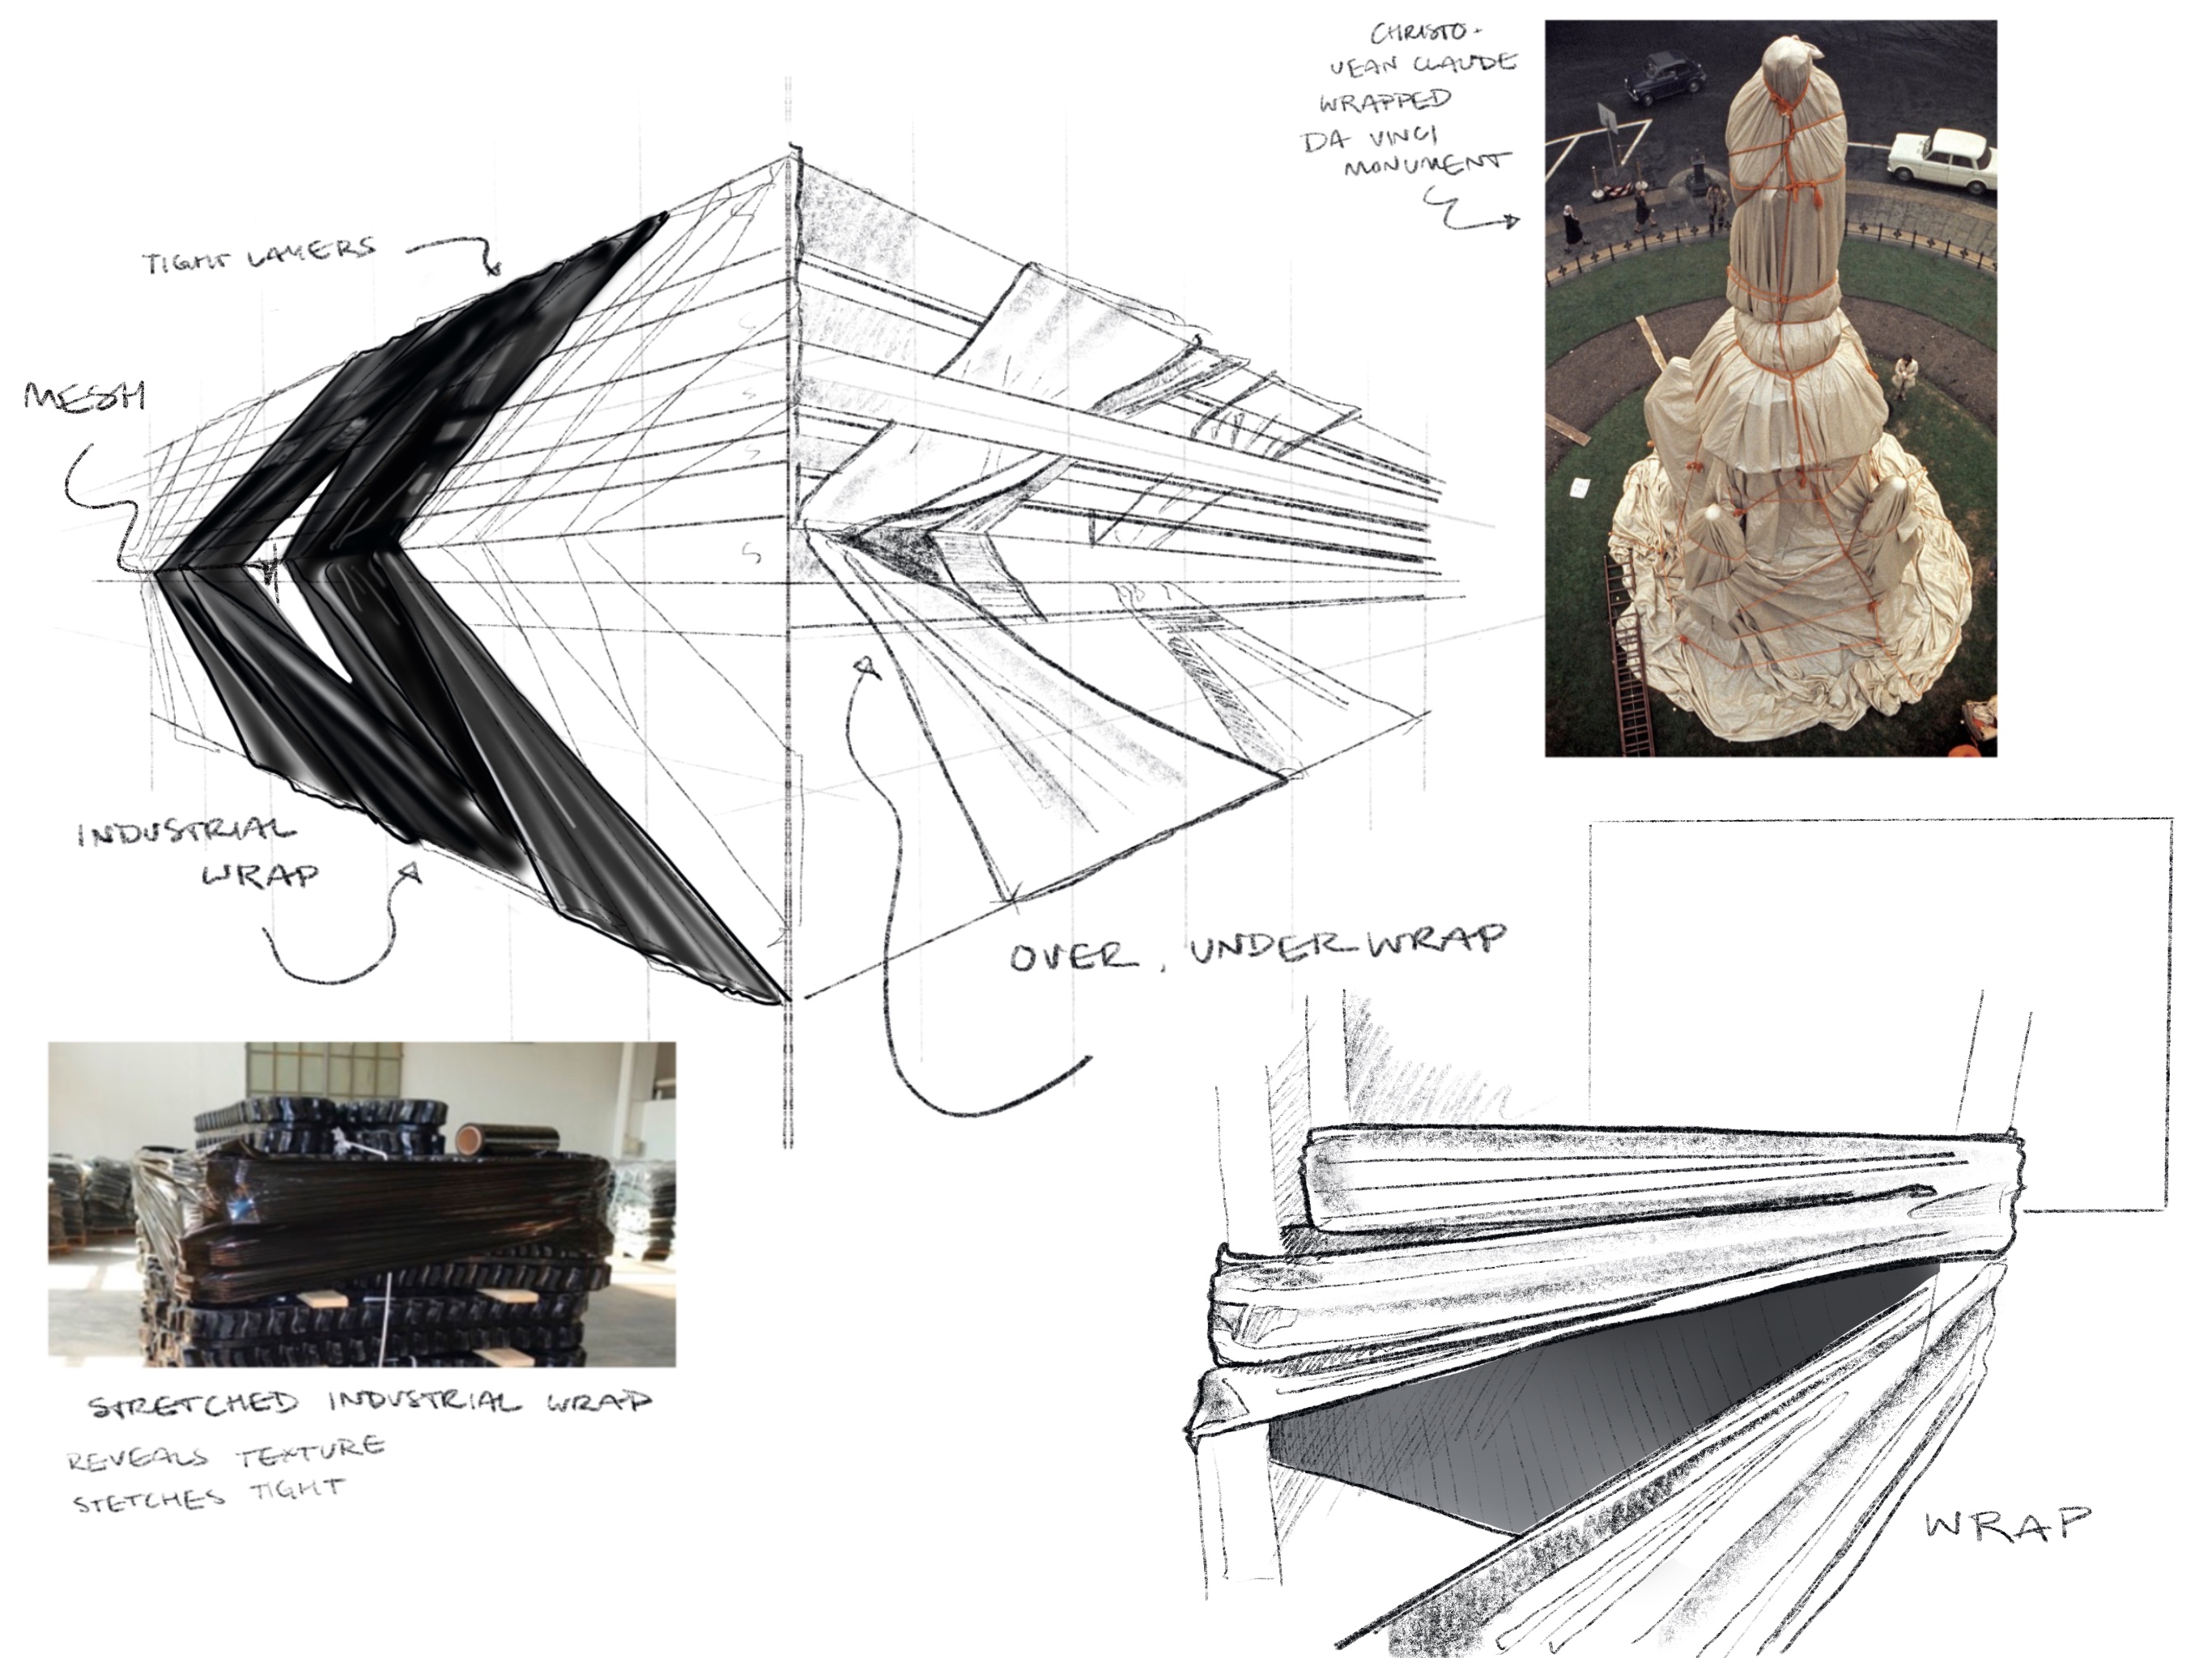 CHRISTO +
JEAN CLAUDE
WRAPPED
DA VINCI
MONUMENT
TIGHT LAYERS
MESH
INDUSTRIAL
WRAP
OVER, UNDER WRAP
STRETCHED INDUSTRIAL WRAP
REVEALS TEXTURE
STETCHES TIGHT
WRAP